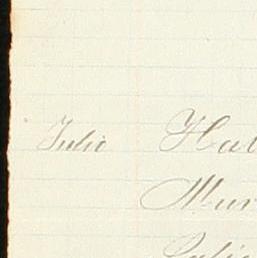 Julio Hal
Mur